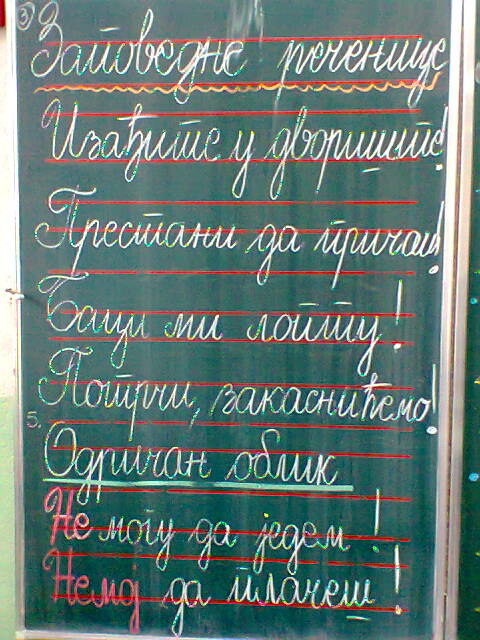 3
Заповедне реченице
Изађите у двориште!
Престани да причаш!
Баци ми лопту!
Потрчи, закаснићемо!
5.
Одричан облик
Не могу да једем!
Немој да плачеш!